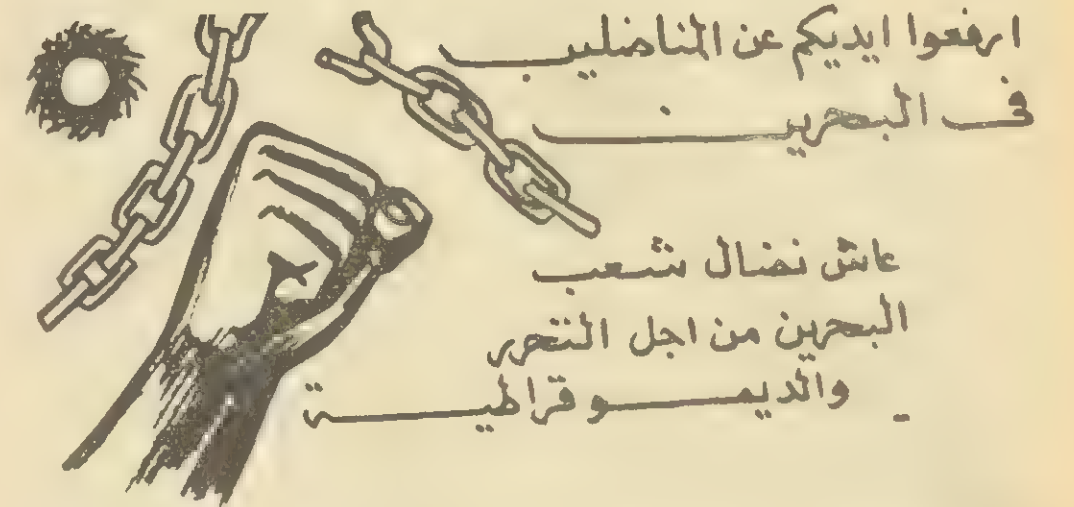 ارفعوا ايديكم عن المناضلين
في البحرين
عاش نضال شعب
البحرين من اجل التحرر
والديموقراطية -